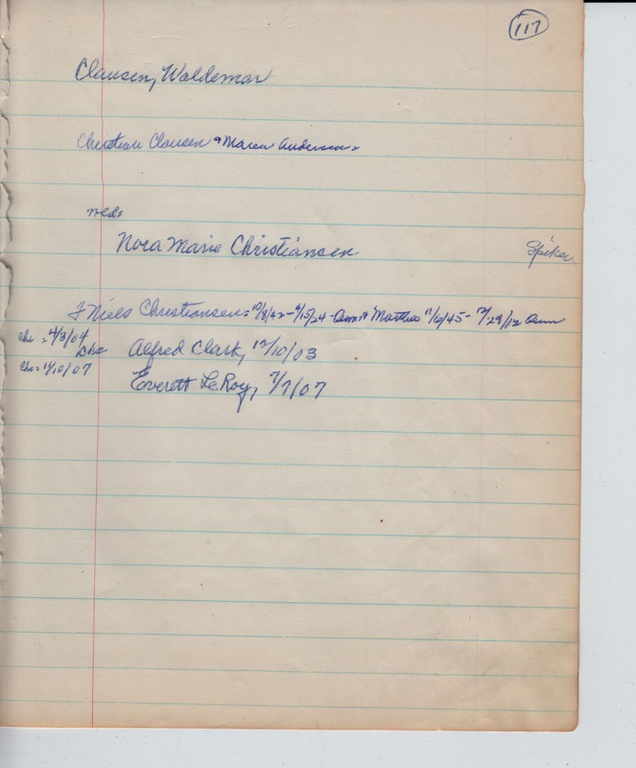 117
Clausen, Waldemar
Christian Clausen & Maren Andersen =
md:
Nora Marie Christiansen Spiker
Niels Christiansen = 10/8/42 - 4/15/24 - & Martha 11/6/45 - 12/29/12
chr = 4/3/04 Alfred Clark, 12/10/03
chr = 11/10/07 Everett LeRoy, 7/7/07